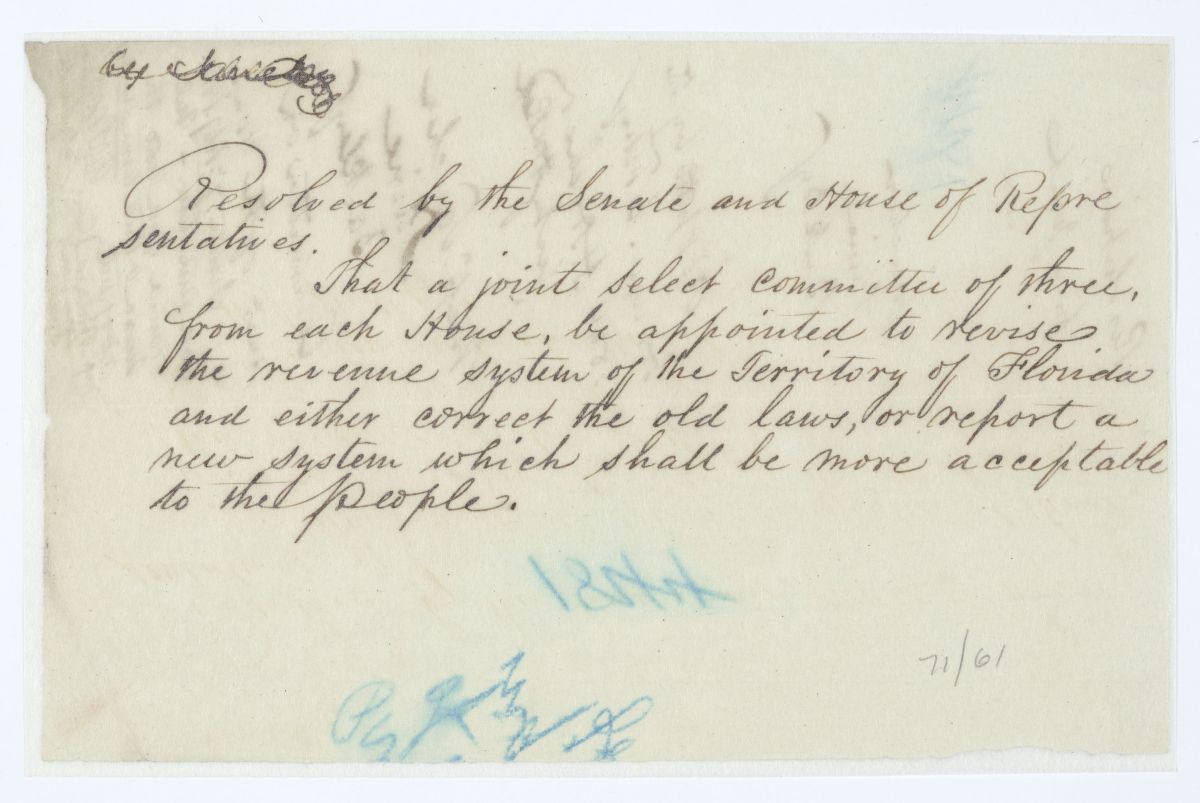 Resolved by the Senate and House of Repre
sentatives.
That a joint select committee of three,
from each House, be appointed to revise
the revenue system of the Territory of Florida
and either correct the old laws, or report a
new system which shall be more acceptable
to the people.
1844
71/61